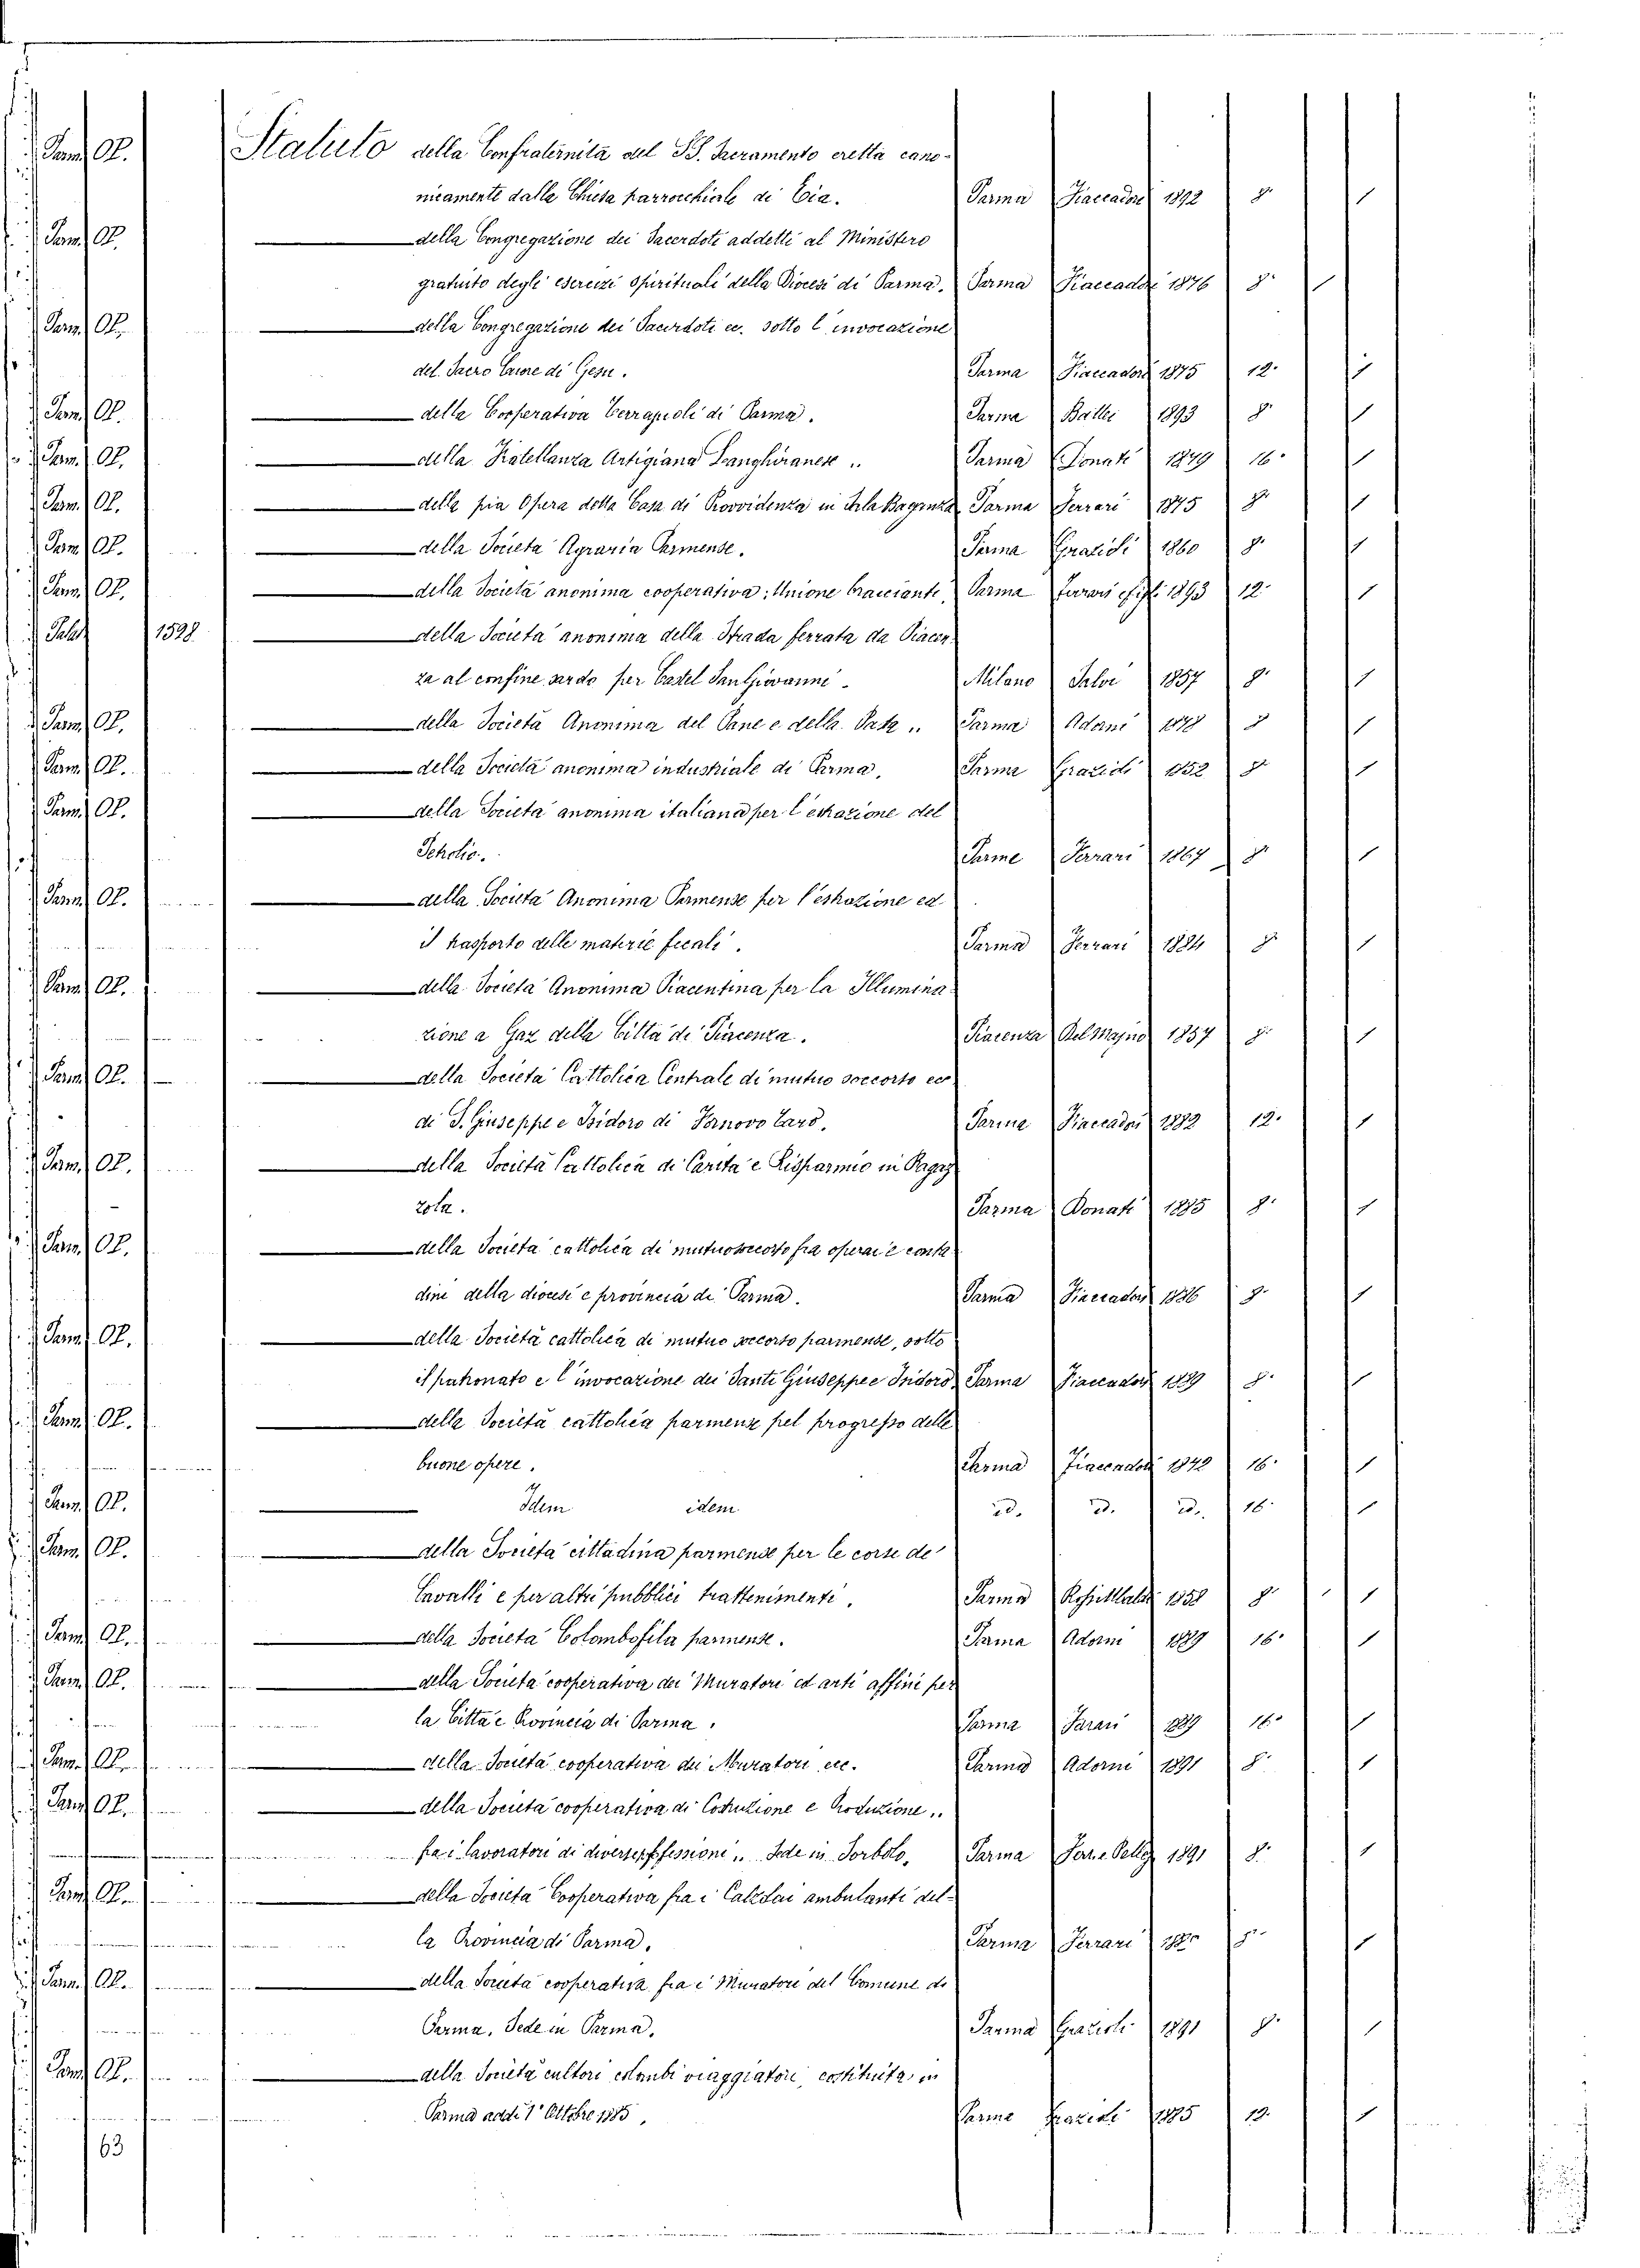 Parm. Op. Statuto della Confraternita del SS. Sacramento eretta cano-
nicamente dalla Chiesa parrocchiale di Eia. Parma Fiaccadori 1892 8° 1
Parm. Op. della Congregazione dei Sacerdoti addetti al Ministero
gratuito degli esercizi spirituali della Diocesi di Parma. Parma Fiaccadori 1876 8° 1
Parm. Op. della Congregazione dei Sacerdoti ec. sotto l'invocazione
del Sacro Cuore di Gesu. Parma Fiaccadori 1875 12° 1
Parm. Op. della Cooperativa Cerrapioli di Parma. Parma Battei 1893 8° 1
Parm. Op. della Fratellanza Artigiana Langhiranese „ Parma Donati 1879 16° 1
Parm. Op. della pia Opera della Casa di Provvidenza in Sala Baganza Parma Ferrari 1875 8° 1
Parm. Op. della Società Agraria Parmense. Parma Grazioli 1860 8° 1
Parm. Op. della Società anonima cooperativa: Unione bracciante, Parma Ferrari e figli 1893 12° 1
Palat. 1598 della Società anonima della Strada ferrata da Piacen-
za al confine sardo per Castel San Giovanni. Milano Salvi 1857 8° 1
Parm. Op. della Società Anonima del Pane e della Pasta „ Parma Adorni 1878 8 1
Parm. Op. della Società anonima industriale di Parma. Parma Grazioli 1852 8° 1
Parm. Op. della Società anonima italiana per l'estrazione del
Petrolio. Parma Ferrari 1867 8° 1
Parm. Op. della Società Anonima Parmense per l'estrazione ed
il trasporto delle materie fecali. Parma Ferrari 1884 8° 1
Parm. Op. della Società Anonima Piacentina per la Illumina-
zione a Gaz della Città di Piacenza. Piacenza Del Majno 1857 8° 1
Parm. Op. della Società Cattolica Centrale di mutuo soccorso ec.
di S. Giuseppe e Isidoro di Fornovo Taro. Parma Fiaccadori 1882 12° 1
Parm. Op. della Società Cattolica di Carità e Risparmio in Ragaz
zola. Parma Donati 1885 8° 1
Parm. Op. della Società cattolica di mutuo soccorso fra operai e conta
dini della diocesi e provincia di Parma. Parma Fiaccadori 1886 8° 1
Parm. Op. della Società cattolica di mutuo soccorso parmense, sotto
il patronato e l'invocazione dei Santi Giuseppe e Isidoro, Parma Fiaccadori 1889 8° 1
Parm. Op. della Società cattolica parmense pel progresso delle
buone opere. Parma Fiaccadori 1842 16° 1
Parm. Op. Idem idem id. id. id. 16° 1
Parm. Op. della Società cittadina parmense per le corse de'
Cavalli e per altri pubblici trattenimenti. Parma 1858 8° 1
Parm. Op. della Società Colombofila parmense. Parma Adorni 1889 16° 1
Parm. Op. della Società cooperativa dei Muratori ed arti affini per
la Città e Provincia di Parma. Parma Ferrari 1889 16° 1
Parm. Op. della Società cooperativa dei Muratori ecc. Parma Adorni 1891 8° 1
Parm. Op. della Società cooperativa di Costruzione e Produzione „
fra i lavoratori di diverse professioni „ Sede in Sorbolo, Parma Ferr. e Pelleg. 1891 8° 1
Parm. Op. della Società Cooperativa fra i Calzolai ambulanti del-
la Provincia di Parma. Parma Ferrari 8° 1
Parm. Op. della Società cooperativa fra i Muratori del Comune di
Parma. Sede in Parma. Parma Grazioli 1891 8° 1
Parm. Op. della Società cultori colombi viaggiatori, costituita in
Parma addì 1° Ottobre 1885. Parma Grazioli 1885 12. 1
63